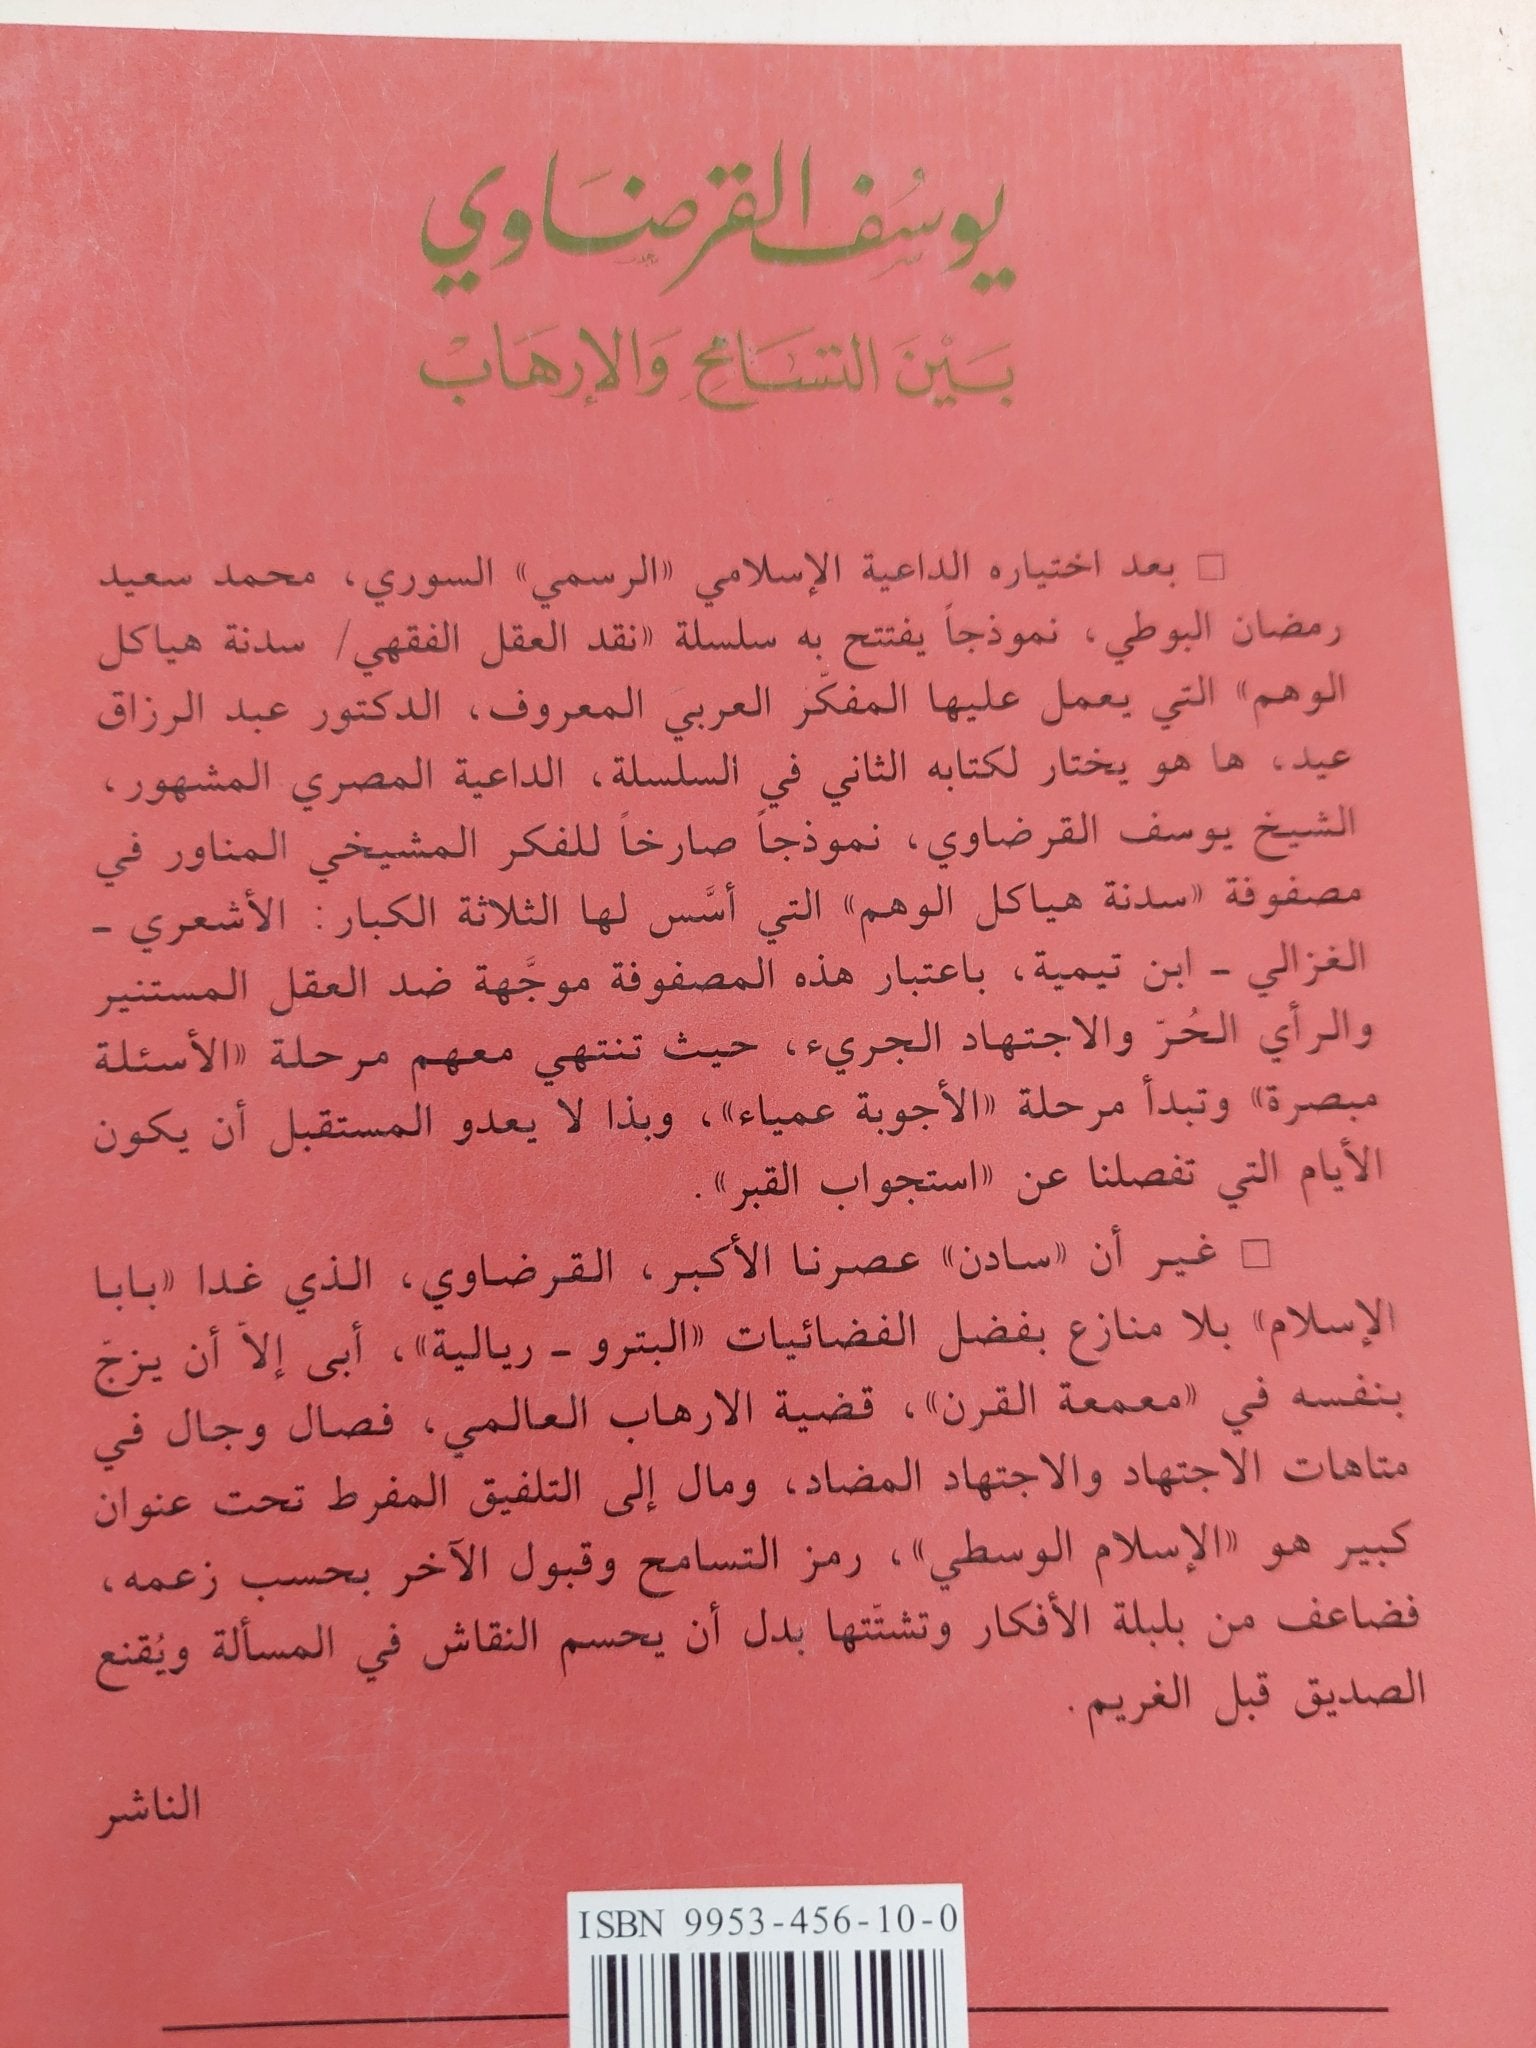 يوسُف القرضَاوي
بَيْنَ التسَامحِ وَالإرهَابْ
□ بعد اختياره الداعية الإسلامي «الرسمي» السوري، محمد سعيد
رمضان البوطي، نموذجاً يفتتح به سلسلة «نقد العقل الفقهي/ سدنة هياكل
الوهم» التي يعمل عليها المفكّر العربي المعروف، الدكتور عبد الرزاق
عيد، ها هو يختار لكتابه الثاني في السلسلة، الداعية المصري المشهور،
الشيخ يوسف القرضاوي، نموذجاً صارخاً للفكر المشيخي المناور في
مصفوفة «سدنة هياكل الوهم» التي أسَّس لها الثلاثة الكبار: الأشعري -
الغزالي - ابن تيمية، باعتبار هذه المصفوفة موجَّهة ضد العقل المستنير
والرأي الحُرّ والاجتهاد الجريء، حيث تنتهي معهم مرحلة «الأسئلة
مبصرة» وتبدأ مرحلة «الأجوبة عمياء»، وبذا لا يعدو المستقبل أن يكون
الأيام التي تفصلنا عن «استجواب القبر».
□ غير أن «سادن» عصرنا الأكبر، القرضاوي، الذي غدا «بابا
الإسلام» بلا منازع بفضل الفضائيات «البترو - ريالية»، أبى إلاّ أن يزجّ
بنفسه في «معمعة القرن»، قضية الارهاب العالمي، فصال وجال في
متاهات الاجتهاد والاجتهاد المضاد، ومال إلى التلفيق المفرط تحت عنوان
كبير هو «الإسلام الوسطي»، رمز التسامح وقبول الآخر بحسب زعمه،
فضاعف من بلبلة الأفكار وتشتّتها بدل أن يحسم النقاش في المسألة ويُقنع
الصديق قبل الغريم.
الناشر
ISBN 9953-456-10-0